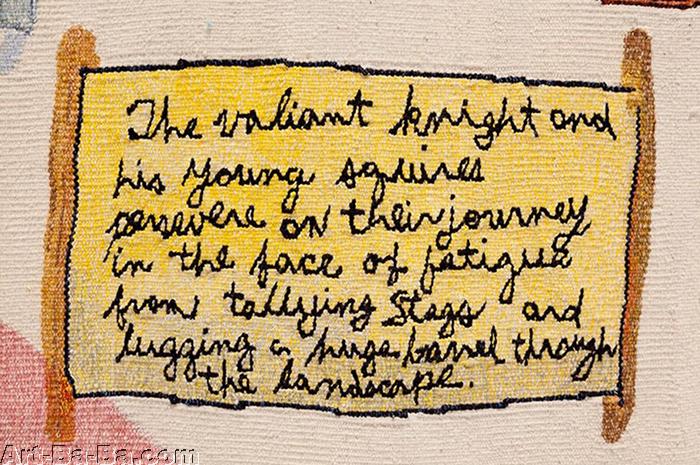 The valiant knight and
his young squires
persevere on their journey
in the face of fatigue
from tallying Stags and
lugging a huge barrel through
the landscape.
Art-Ba-Ba.com